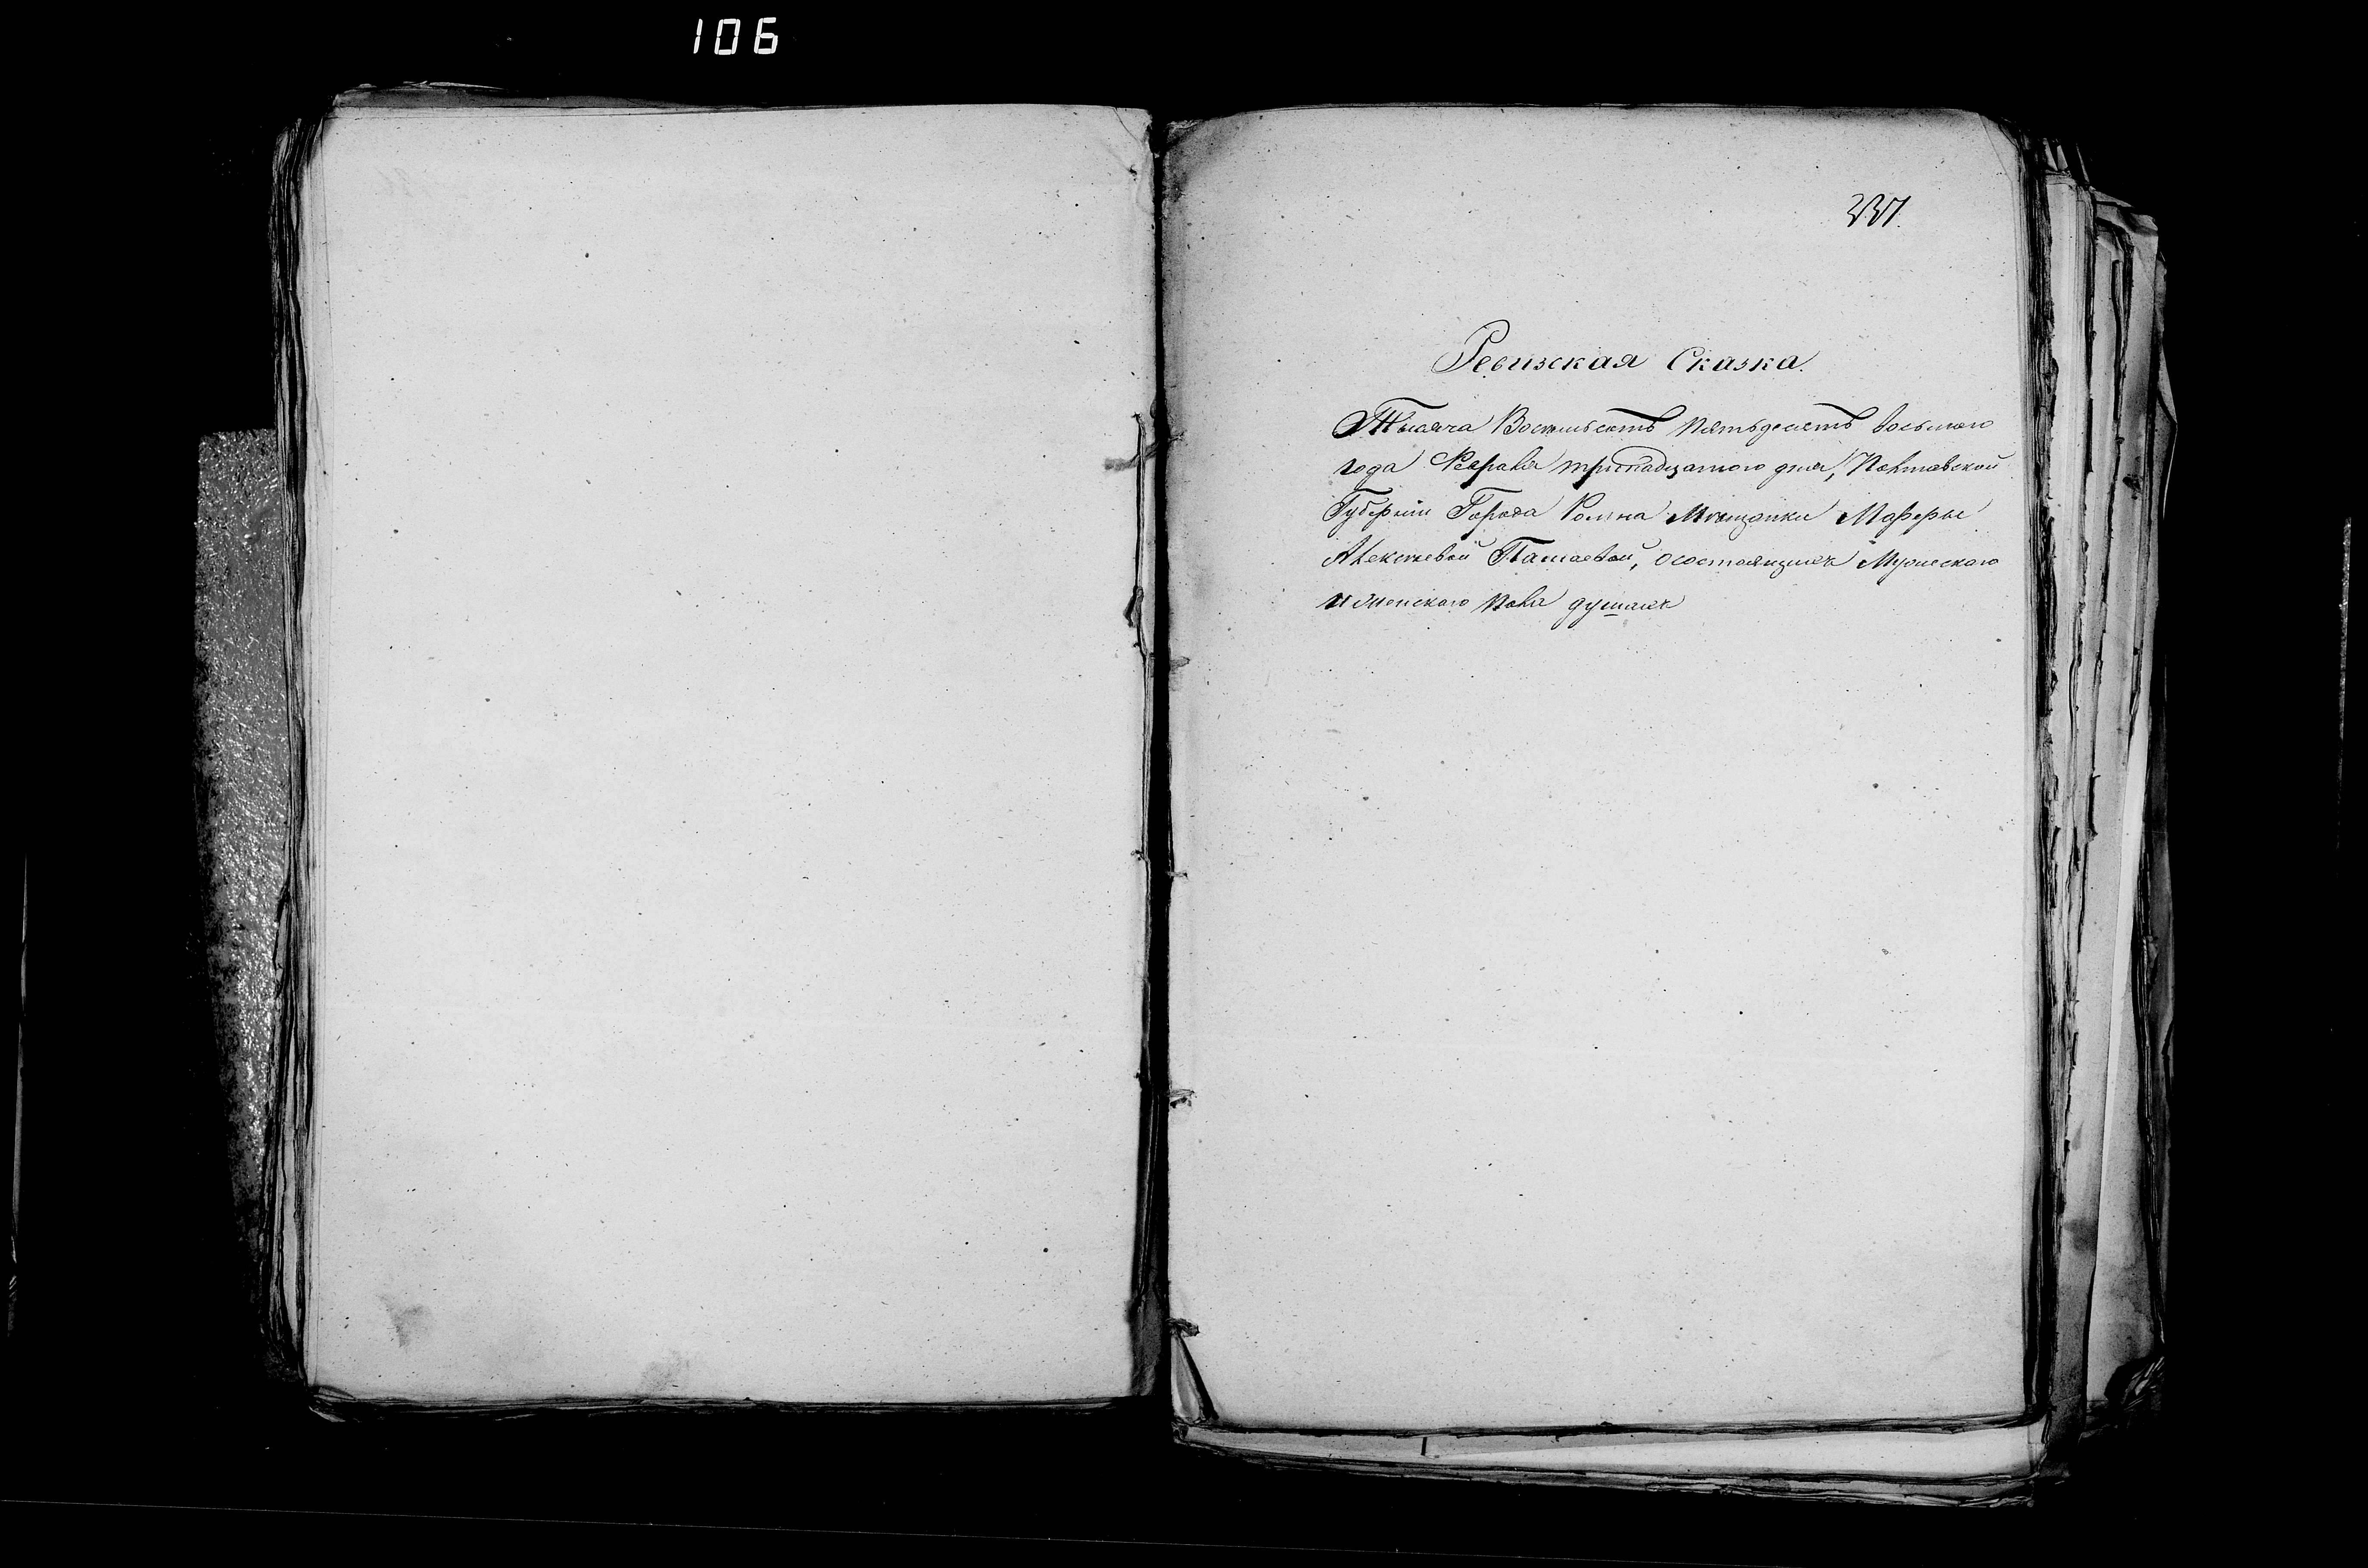 106
337.
Ревизская Сказка.
Тысяча Восемьсотъ пятьдесятъ восьмого
года Февраля тринадцатого дня, Полтавской
Губерніи Города Ромна Мѣщанки Марфры
Алексѣевой, осостоящихъ Мужеского
и женского пола душахъ